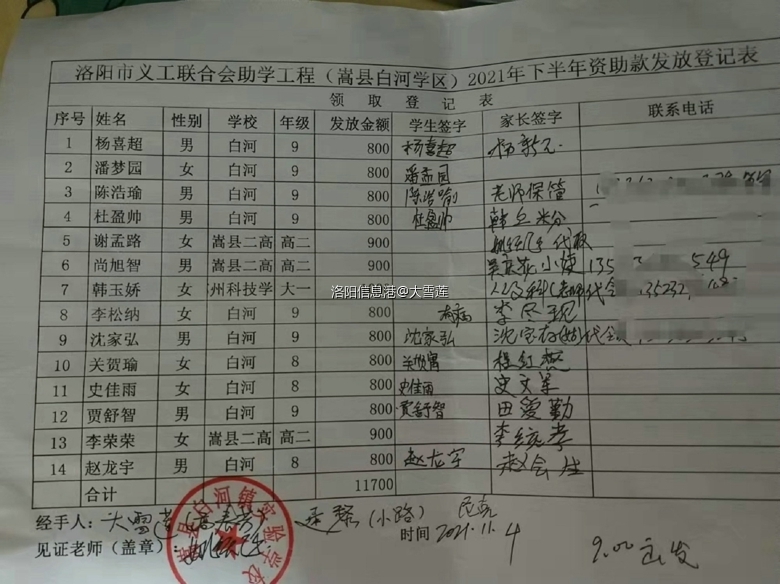 洛阳市义工联合会助学工程（嵩县白河学区）2021年下半年资助款发放登记表
领 取 登 记 表
序号 姓名 性别 学校 年级 发放金额 学生签字 家长签字 联系电话
1 杨喜超 男 白河 9 800 杨喜超
2 潘梦园 女 白河 9 800 潘孟园
3 陈浩瑜 男 白河 9 800 陈浩瑜 老师保管
4 杜盈帅 男 白河 9 800 杜盈帅
5 谢孟路 女 嵩县二高 高二 900 代取
6 尚旭智 男 嵩县二高 高二 900 135 549
7 韩玉娇 女 州科技学 大一
洛阳信息港@大雪莲
8 李松纳 女 白河 9 800 有病
9 沈家弘 男 白河 9 800 沈家弘
10 关贺瑜 女 白河 8 800
11 史佳雨 女 白河 8 800 史佳雨 史文军
12 贾舒智 男 白河 9 800 贾舒智 田爱勤
13 李荣荣 女 嵩县二高 高二 900
14 赵龙宇 男 白河 8 800 赵龙宇 赵会生
合计 11700
经手人：大雪莲 (小路)
时间 2021.11.4
见证老师（盖章）：
9.00 出发
嵩县白河镇实验学校